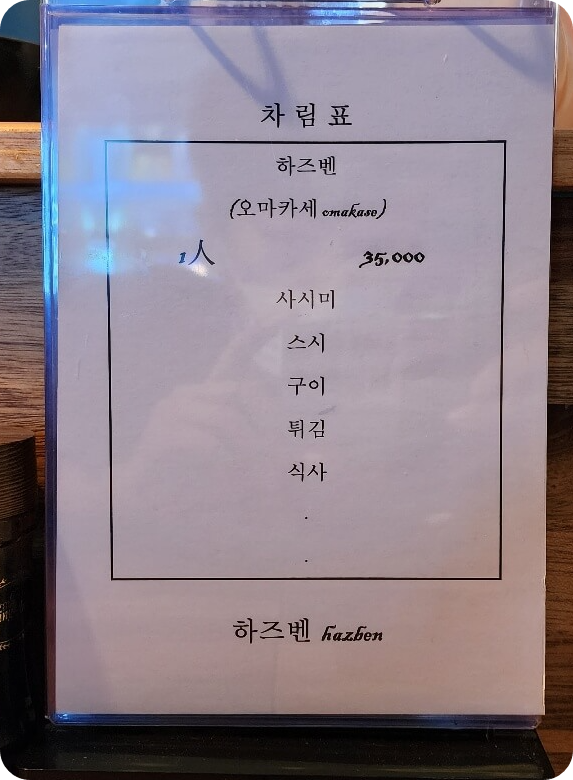 차림표
하즈벤
(오마카세 omakase)
1人 35,000
사시미
스시
구이
튀김
식사
.
.
하즈벤 hazben